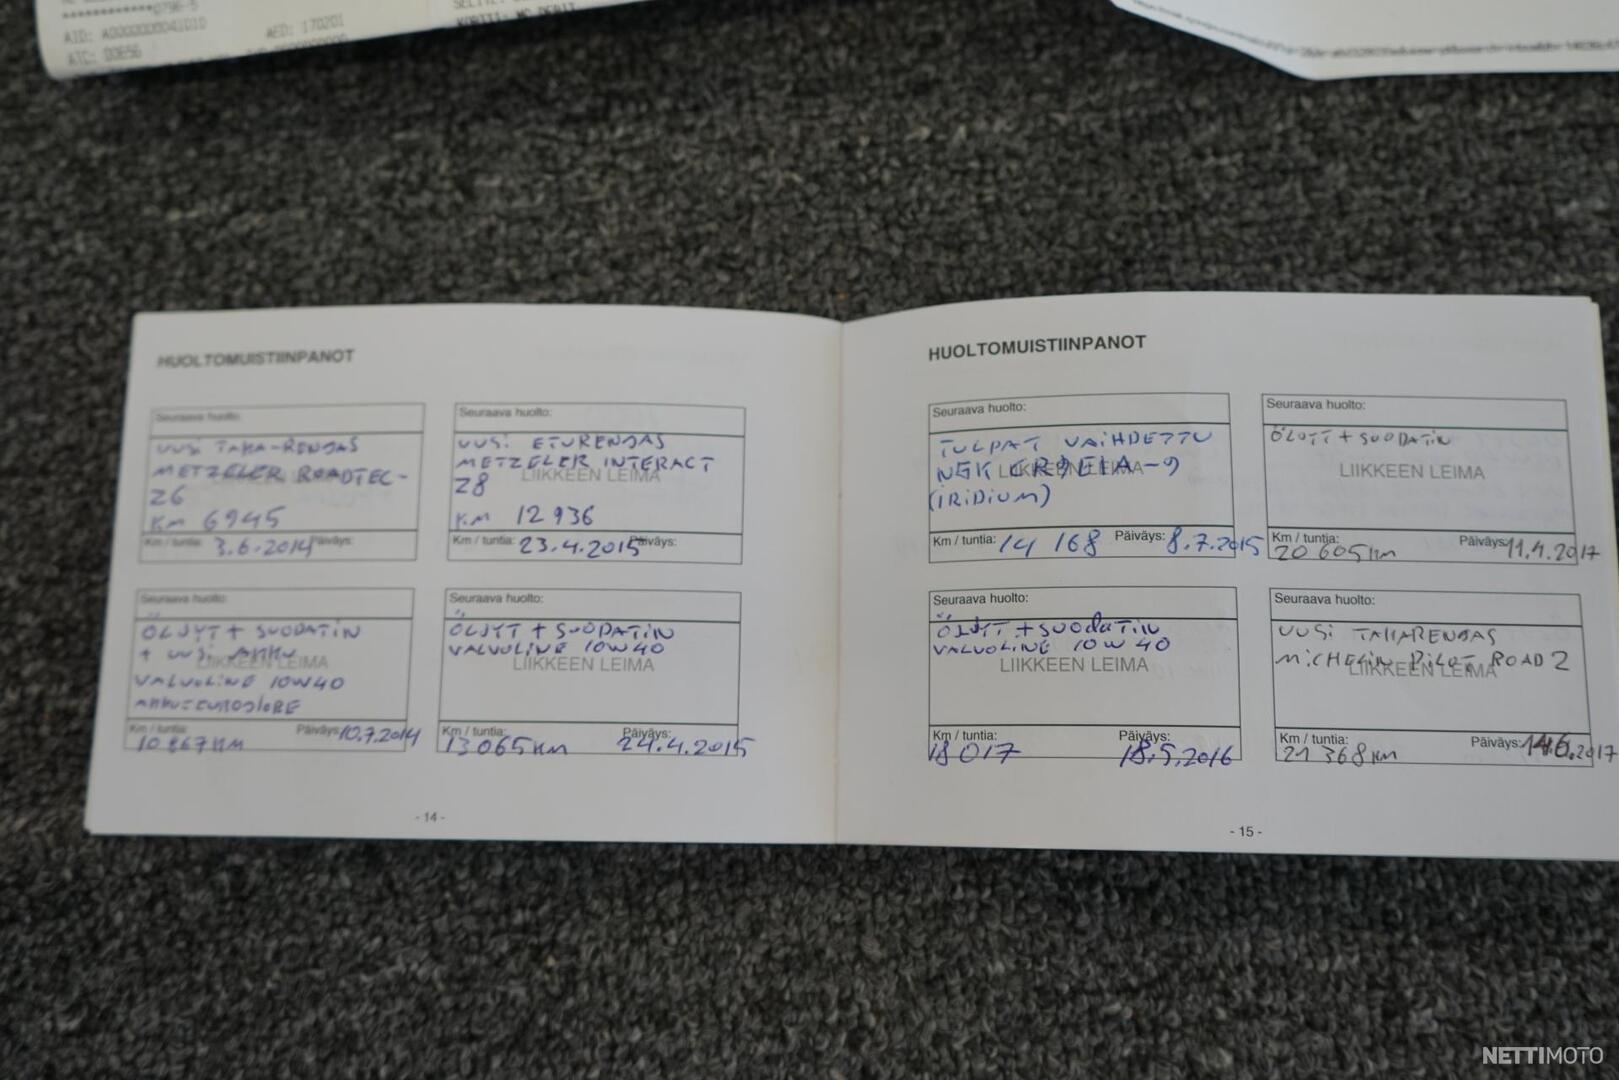 0796-5
AID: A0000000041010
AED: 170201
ATC: 00656
KORTTI: MC DEBIT
HUOLTOMUISTIINPANOT
Seuraava huolto:
UUSI TAKA-RENGAS
METZELER ROADTEC-
Z6
KM 6945
Km / tuntia: 3.6.2014 Päiväys:
Seuraava huolto:
UUSI ETURENGAS
METZELER INTERACT
LIIKKEEN LEIMA
Z8
KM 12 936
Km / tuntia: 23.4.2015 Päiväys:
Seuraava huolto:
ÖLJYT + SUODATIN
+ UUSI AKKU
LIIKKEEN LEIMA
VALVOLINE 10W40
AKKU=EUROGLOBE
Km / tuntia: 10 867KM Päiväys: 10.7.2014
Seuraava huolto:
ÖLJYT + SUODATIN
VALVOLINE 10W40
LIIKKEEN LEIMA
Km / tuntia: 13 065 KM Päiväys: 24.4.2015
- 14 -
HUOLTOMUISTIINPANOT
Seuraava huolto:
TULPAT VAIHDETTU
NGK CR8EIA-9
LIIKKEEN LEIMA
(IRIDIUM)
Km / tuntia: 14 168 Päiväys: 8.7.2015
Seuraava huolto:
ÖLJYT + SUODATIN
LIIKKEEN LEIMA
Km / tuntia: 20 605 KM Päiväys: 11.4.2017
Seuraava huolto:
ÖLJYT + SUODATIN
VALVOLINE 10W40
LIIKKEEN LEIMA
Km / tuntia: 18 017 Päiväys: 18.5.2016
Seuraava huolto:
UUSI TAKARENGAS
MICHELIN PILOT ROAD 2
LIIKKEEN LEIMA
Km / tuntia: 21 368 KM Päiväys: 14.6.2017
- 15 -
NETTIMOTO